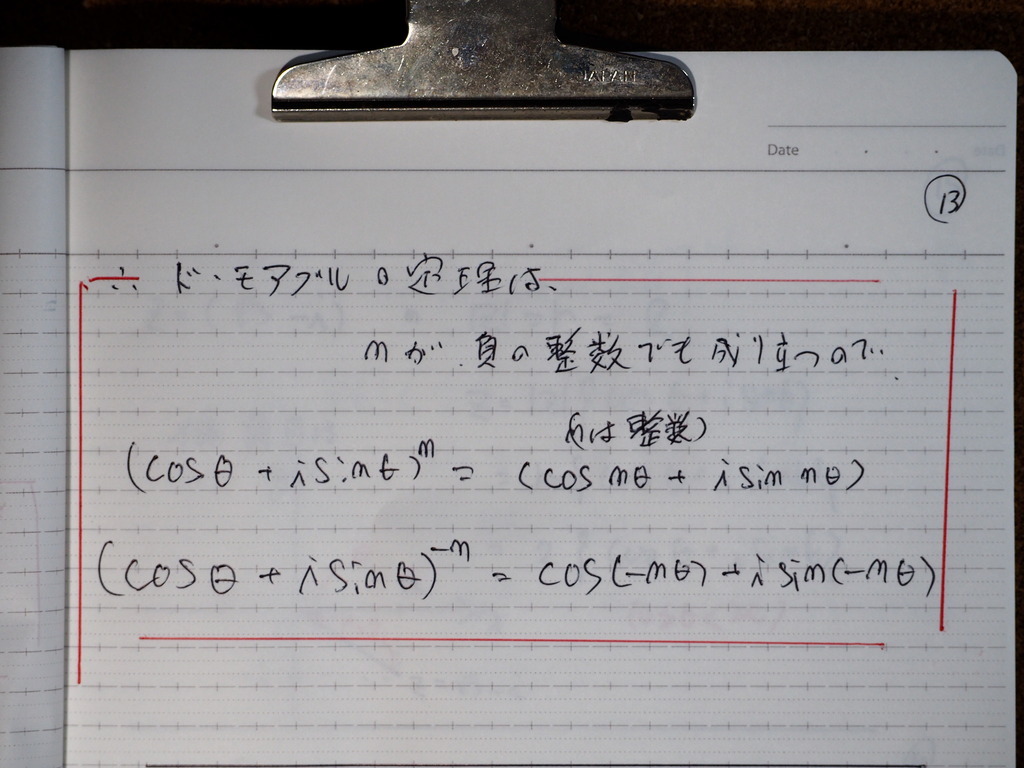 JAPAN
Date
13
∴ ド・モアブルの定理は、
nが 負の整数でも成り立つので、
(nは整数)
(cosθ + i sinθ)^n = (cos nθ + i sin nθ)
(cosθ + i sinθ)^-n = cos(-nθ) + i sin(-nθ)